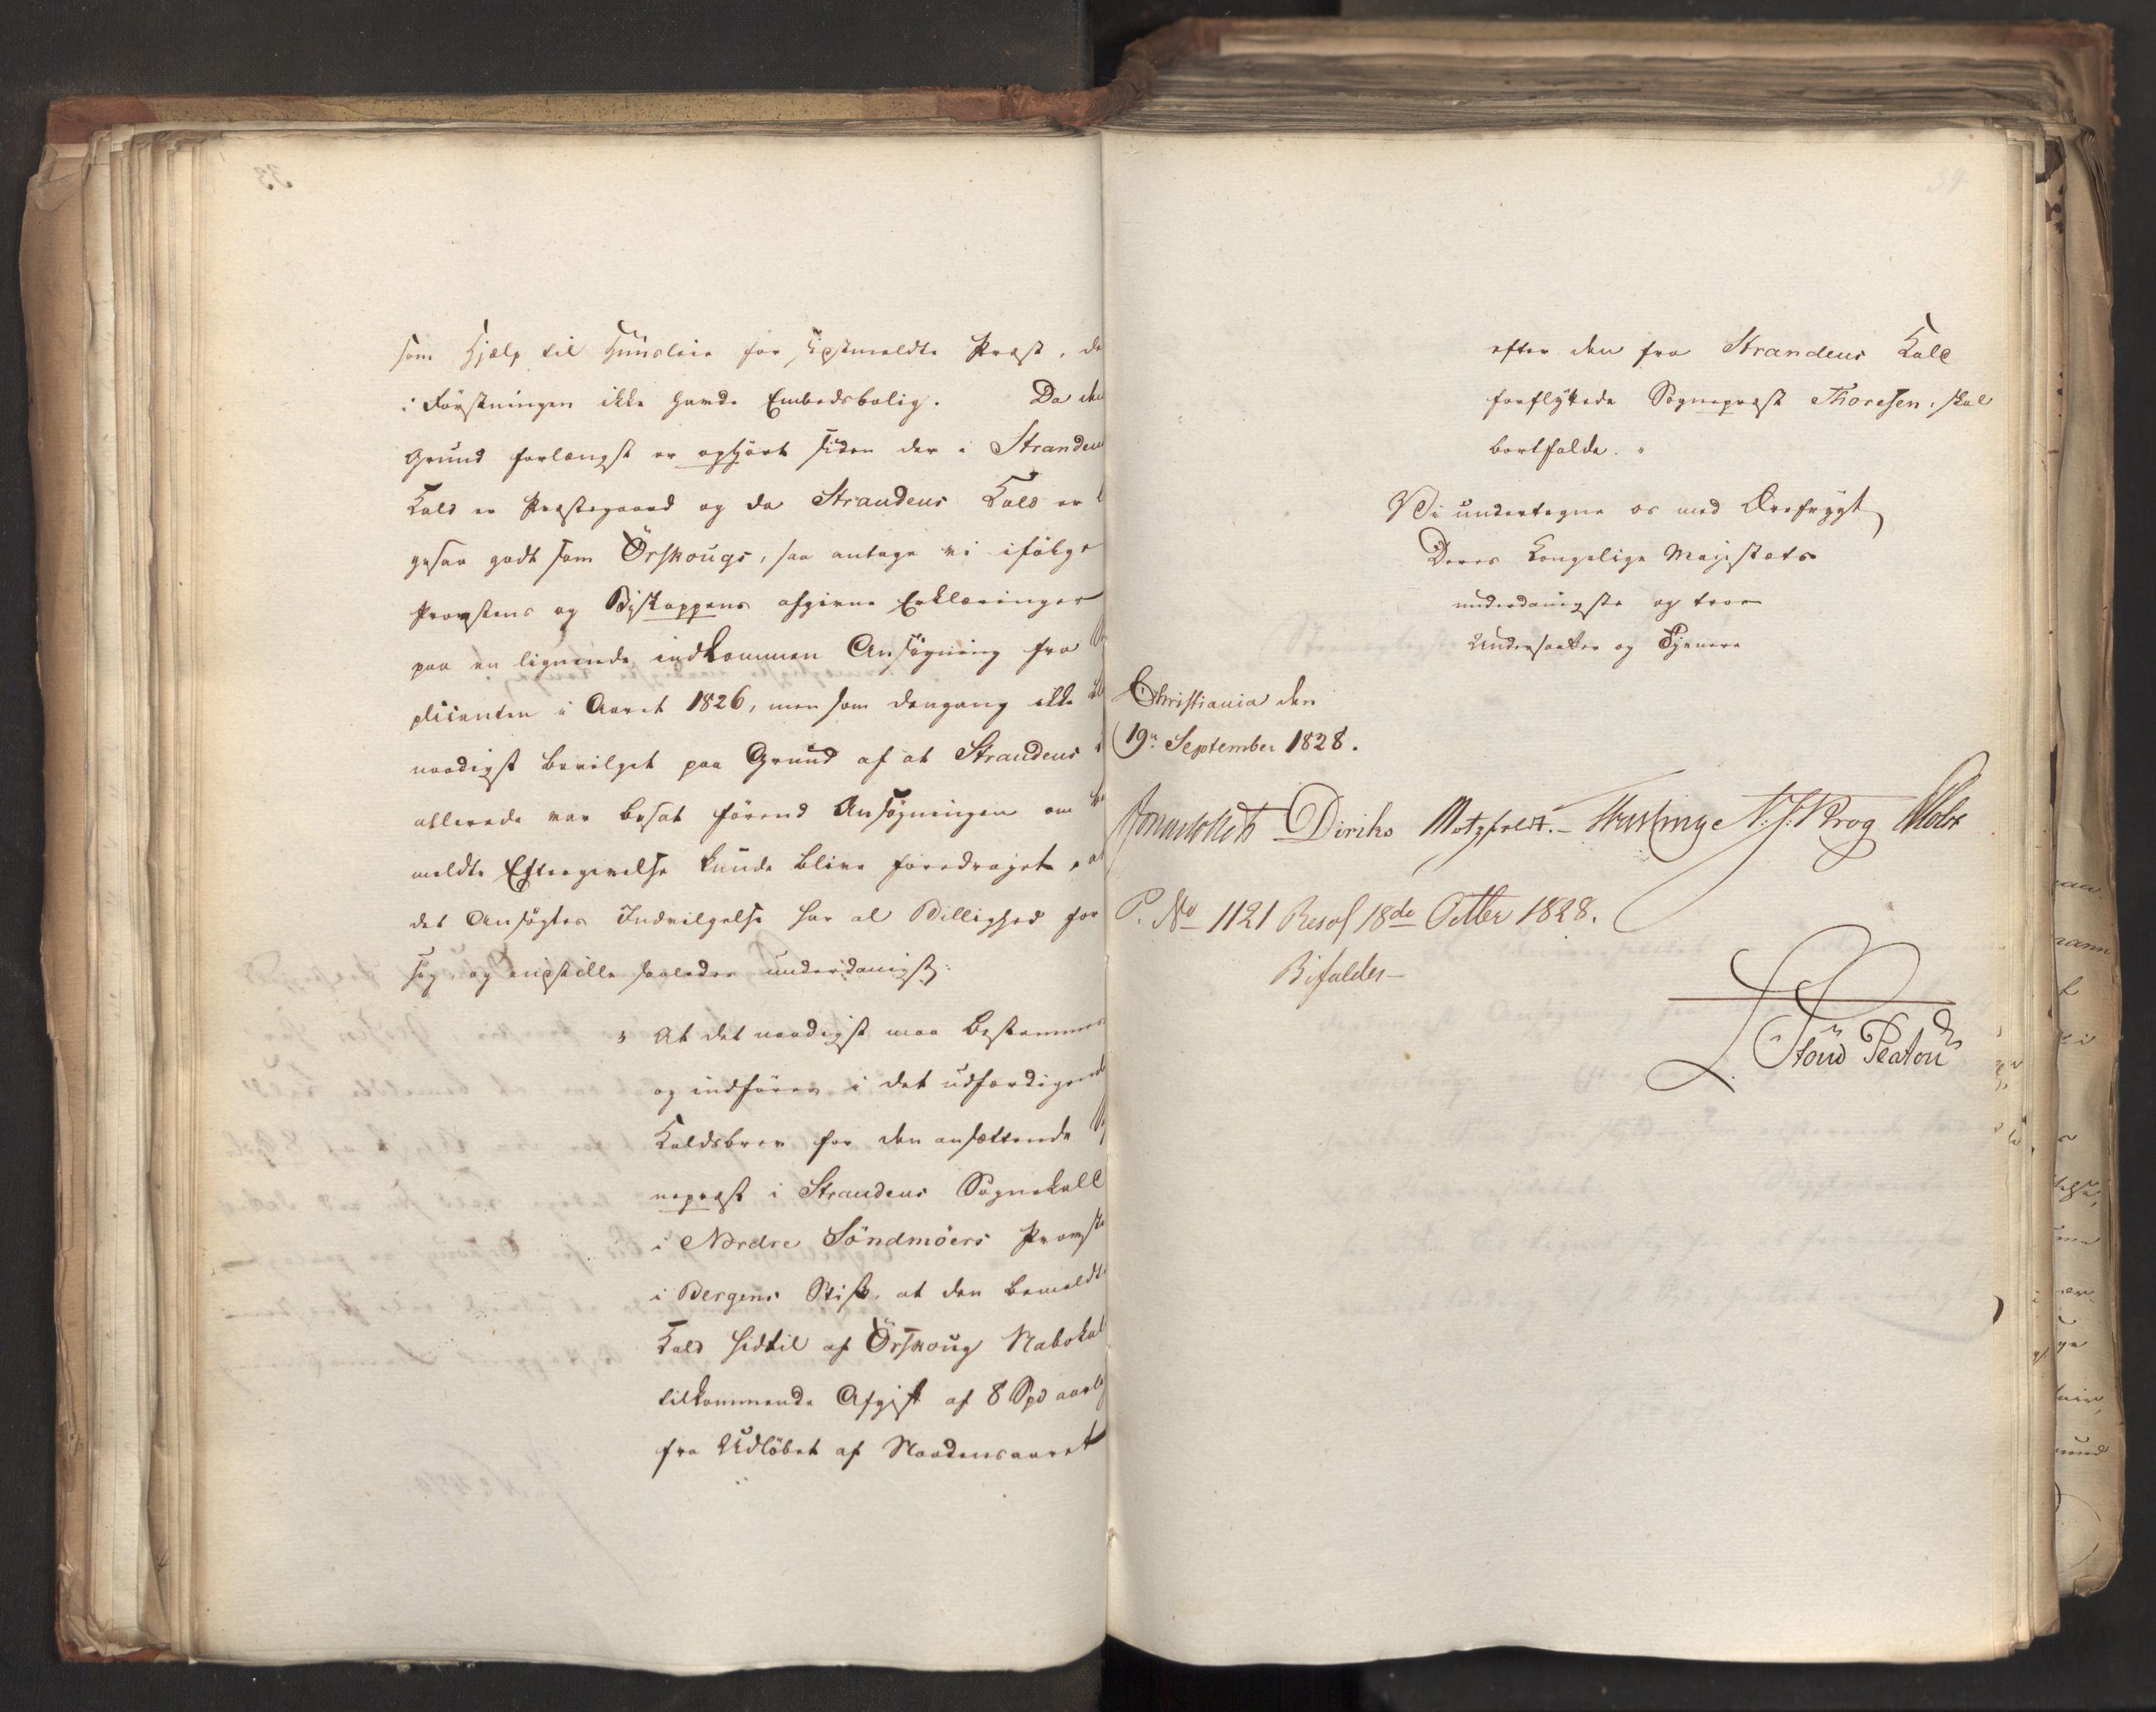 som Hjælp til Huusleie for sidstmeldte Præst, da
i Førstningen ikke havde Embedsbolig. Da den
Grund forlængst er ophört siden der i Strandens
Kald er Præstegaard og da Strandens Kald er
gesaa godt som Örskougs, saa antage vi ifölge
Provstens og Biskoppens afgivne Erklæringer
paa en lignende indkommen Ansögning fra
plicanten i Aaret 1826, men som dengang ikke
naadigst bevilget paa Grund af at Strandens
allerede var besat förend Ansögningen om
meldte Eftergivelse kunde blive foredraget, at
det Ansögtes Indvilgelse har al Billighed for
sig og indstille saaledes underdanigst:
" At det naadigst maa bestemmes
og indföres i det udfærdigende
Kaldsbrev for den ansættende
nepræst i Strandens Sognekald
i Nordre Söndmöers Provstie
i Bergens Stift, at den bemeldte
Kald hidtil af Örskoug Nabokald
tilkommende Afgift af 8 Spd aarlig
fra Udlöbet af Naadensaaret
33
34
efter den fra Strandens Kald
forflyttede Sognepræst Thoresen, skal
bortfalde. "
Vi undertegne os med Ærefrygt
Deres Kongelige Majestæts
underdanigste og troe
Undersaatter og Tjenere
Christiania den
19n September 1828.
Diriks Motzfeldt. N. J. Krog
P. No 1121 Resol 18de Octber 1828.
Bifaldes